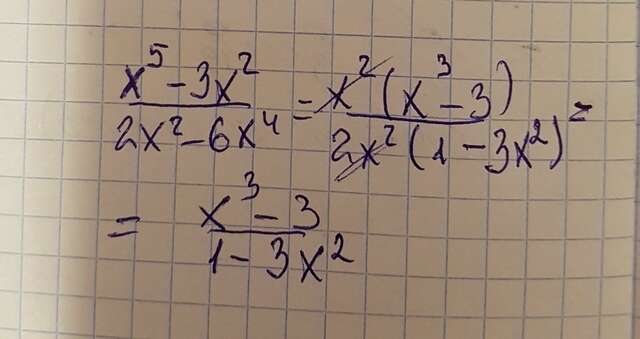 (x⁵ - 3x²)/(2x² - 6x⁴) = (x²(x³ - 3))/(2x²(1 - 3x²)) =
= (x³ - 3)/(1 - 3x²)